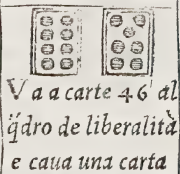 V a a carte 46 al
q̈dro de liberalità
e caua una carta